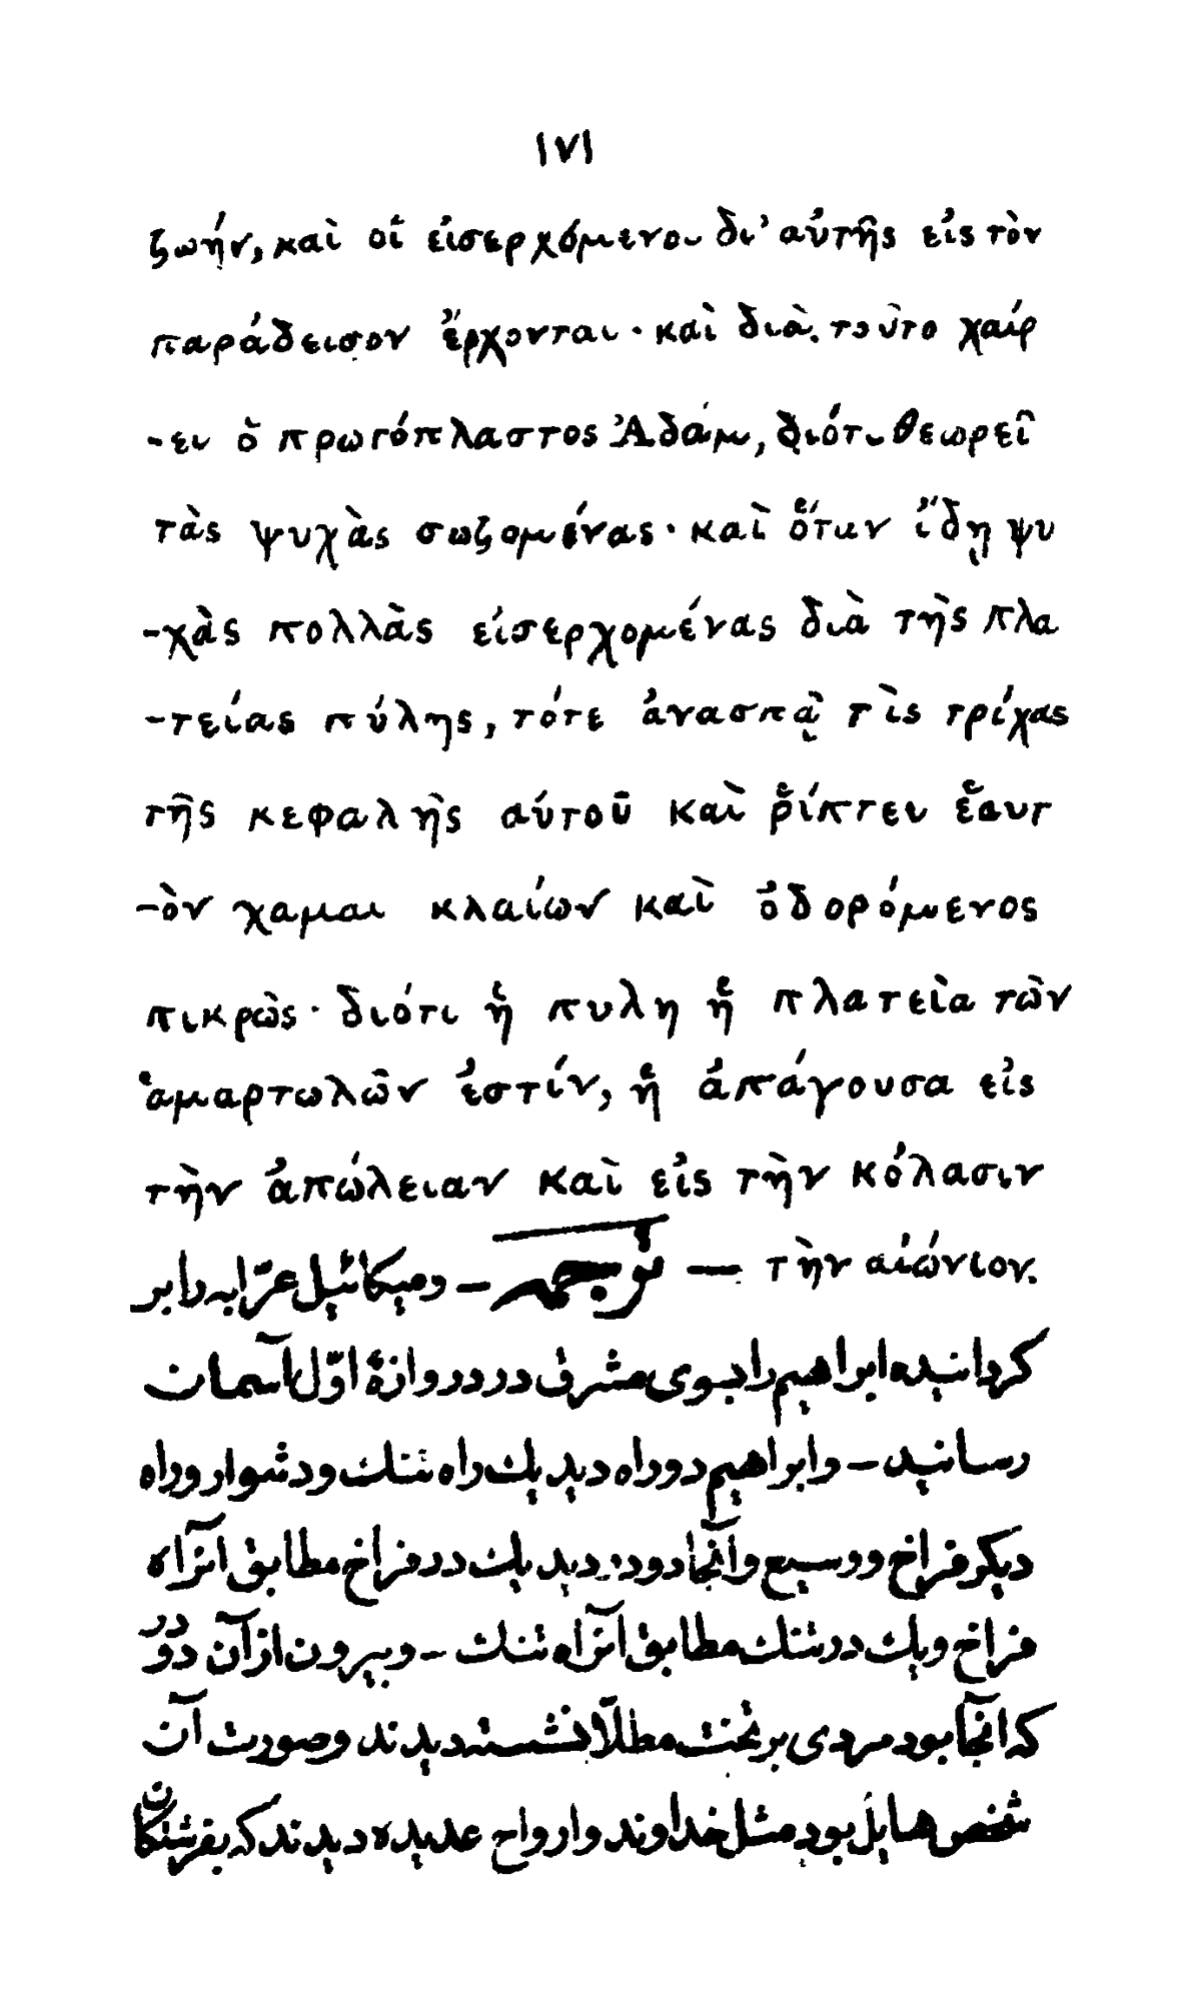 ١٧١
ζωήν, και οἵ εἰσερχόμενοι δι' αὐτῆς εἰς τὸν
παράδεισον ἔρχονται · καὶ διὰ τοῦτο χαίρ
-ει ὅ πρωτόπλαστος Ἀδάμ, διότι θεωρεῖ
τὰς ψυχὰς σωζομένας · καὶ ὅταν ἴδῃ ψυ
-χὰς πολλὰς εἰσερχομένας διὰ τῆς πλα
-τείας πύλης, τότε ἀνασπᾷ τὶς τρίχας
τῆς κεφαλῆς αὐτοῦ καὶ ῥίπτει ἑαυτ
-ὸν χαμαι κλαίων καὶ ὀδορόμενος
πικρῶς · διότι ἡ πυλη ἡ πλατεῖα τῶν
ἁμαρτωλῶν ἐστίν, ἡ ἀπάγουσα εἰς
τὴν ἀπώλειαν καὶ εἰς τὴν κόλασιν
τὴν αἰώνιον. — ترجمه — وميكائيل عرّابه را بر
كردانيده ابراهيم را بسوى مشرق در دروازۀ اوّل آسمان
رسانيد — وابراهيم دو راه ديد يك راه تنك ودشوار وراه
ديكر فراخ ووسيع وآنجا دو در ديد يك در فراخ مطابق آنراه
فراخ ويك در تنك مطابق آنراه تنك — وبيرون از آن دو در
كه آنجا بود مردى بر تخت مطلّا نشسته ديدند وصورت آن
شخص هايل بود مثل خداوند وارواح عديده ديدند كه بفرشتكان